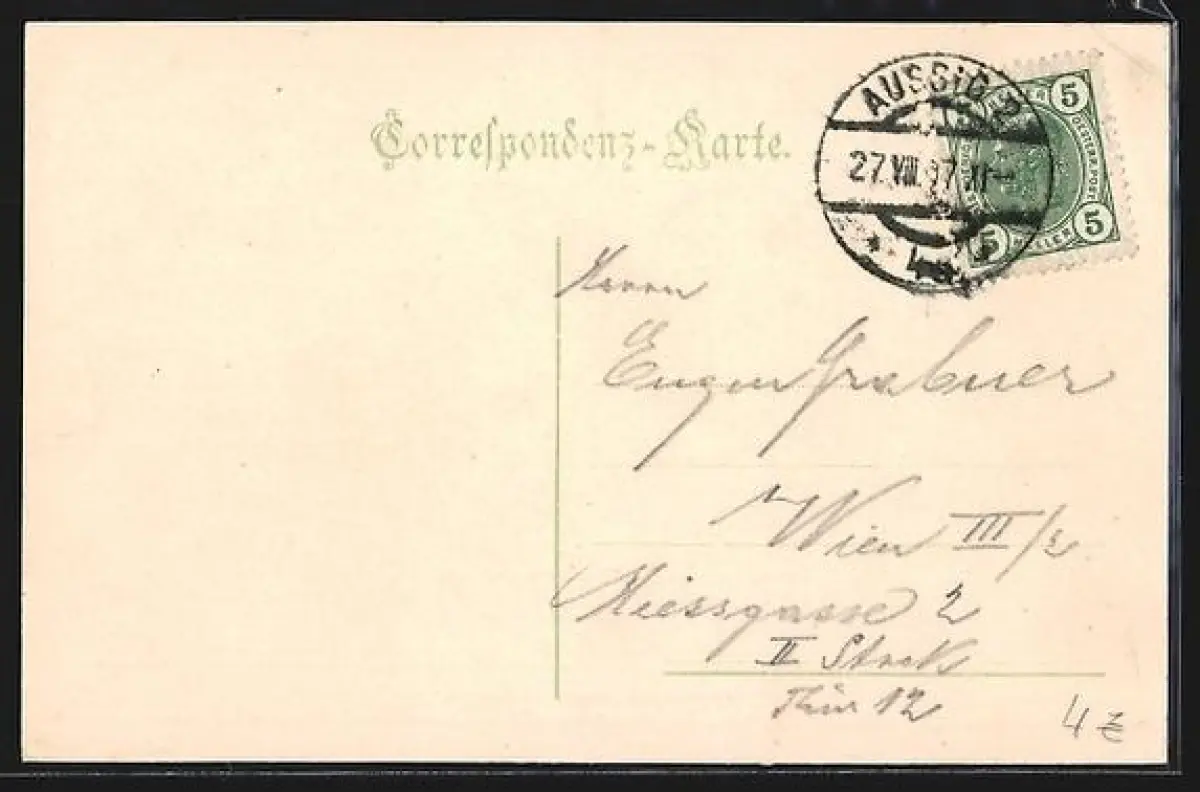 Correspondenz-Karte.
AUSSIG 2
27.VIII. 07.XI
5
5
5
HELLER
Herrn
Eugen Grabner
Wien III/2
Miessgasse 2
II Stock
Thür 12
4